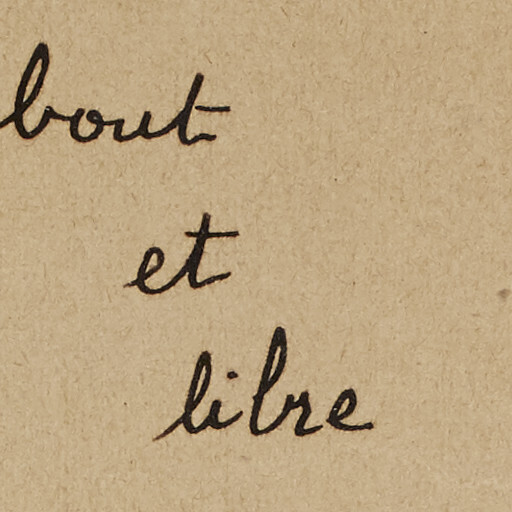 bout
et
libre